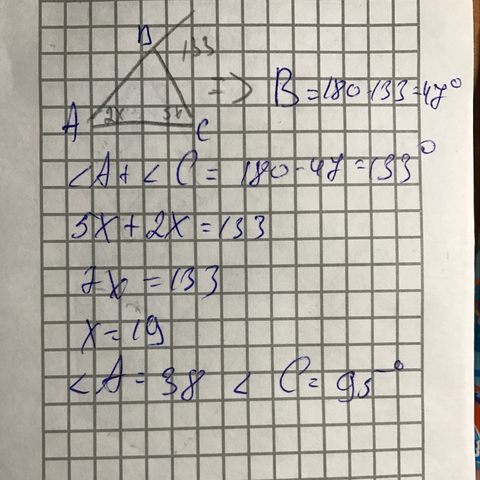 B
133
A 2x 5x C
=> B=180-133=47°
<A+<C=180-47=133°
5x+2x=133
7x=133
x=19
<A=38 <C=95°